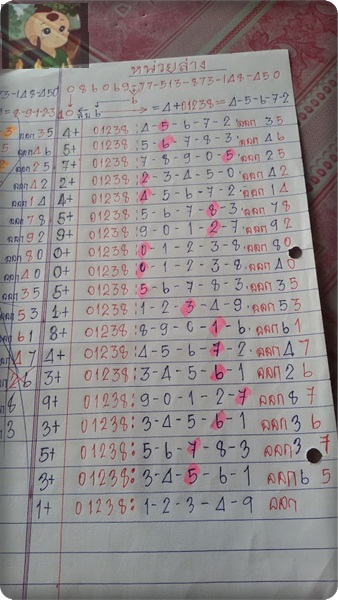 หน่วยล่าง
086069:77-513-873-148-450
=4+01238=4-5-6-7-2
35 4+ 01238:4-5-6-7-2 ออก 35
ออก46 5+ 01238:5-6-7-8-3 ออก 46
ออก25 7+ 01238:7-8-9-0-5 ออก 25
ออก42 2+ 01238:2-3-4-5-0 ออก 42
ออก14 4+ 01238:4-5-6-7-2 ออก 14
ออก78 5+ 01238:5-6-7-8-3 ออก 78
ออก92 9+ 01238:9-0-1-2-7 ออก 92
ออก80 0+ 01238:0-1-2-3-8 ออก 80
ออก40 0+ 01238:0-1-2-3-8 ออก 40
ออก35 5+ 01238:5-6-7-8-3 ออก 35
ออก53 1+ 01238:1-2-3-4-9 ออก 53
61 8+ 01238:8-9-0-1-6 ออก 61
47 4+ 01238:4-5-6-7-2 ออก 47
26 3+ 01238:3-4-5-6-1 ออก 26
8 9+ 01238:9-0-1-2-7 ออก 87
3 3+ 01238:3-4-5-6-1 ออก 36
5+ 01238:5-6-7-8-3 ออก3 7
3+ 01238:3-4-5-6-1 ออก6 5
1+ 01238:1-2-3-4-9 ออก